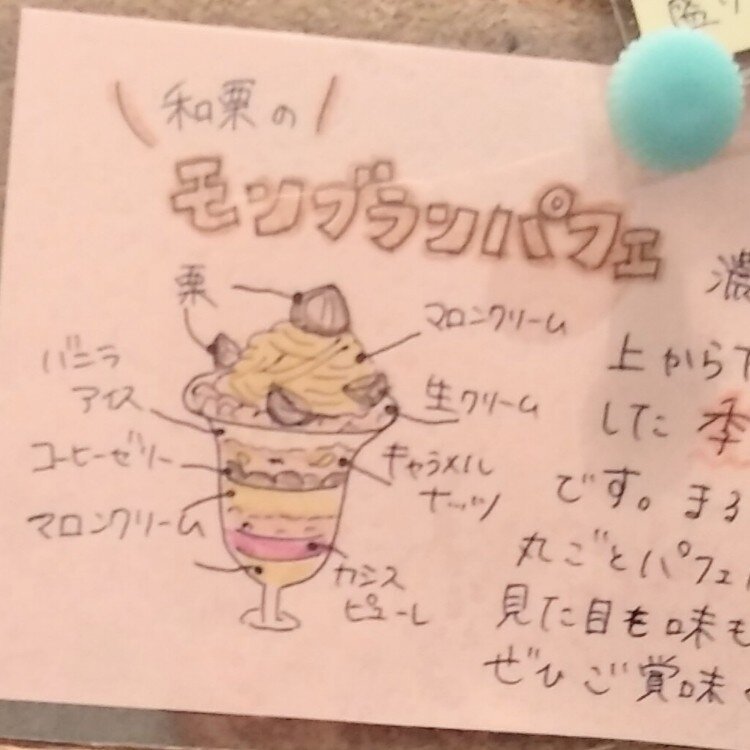 和栗の
モンブランパフェ
栗
マロンクリーム
バニラ
アイス
生クリーム
コーヒーゼリー
キャラメル
ナッツ
マロンクリーム
カシス
ピューレ
濃
上から下
した季
です。まる
丸ごとパフェ
見た目も味も
ぜひご賞味